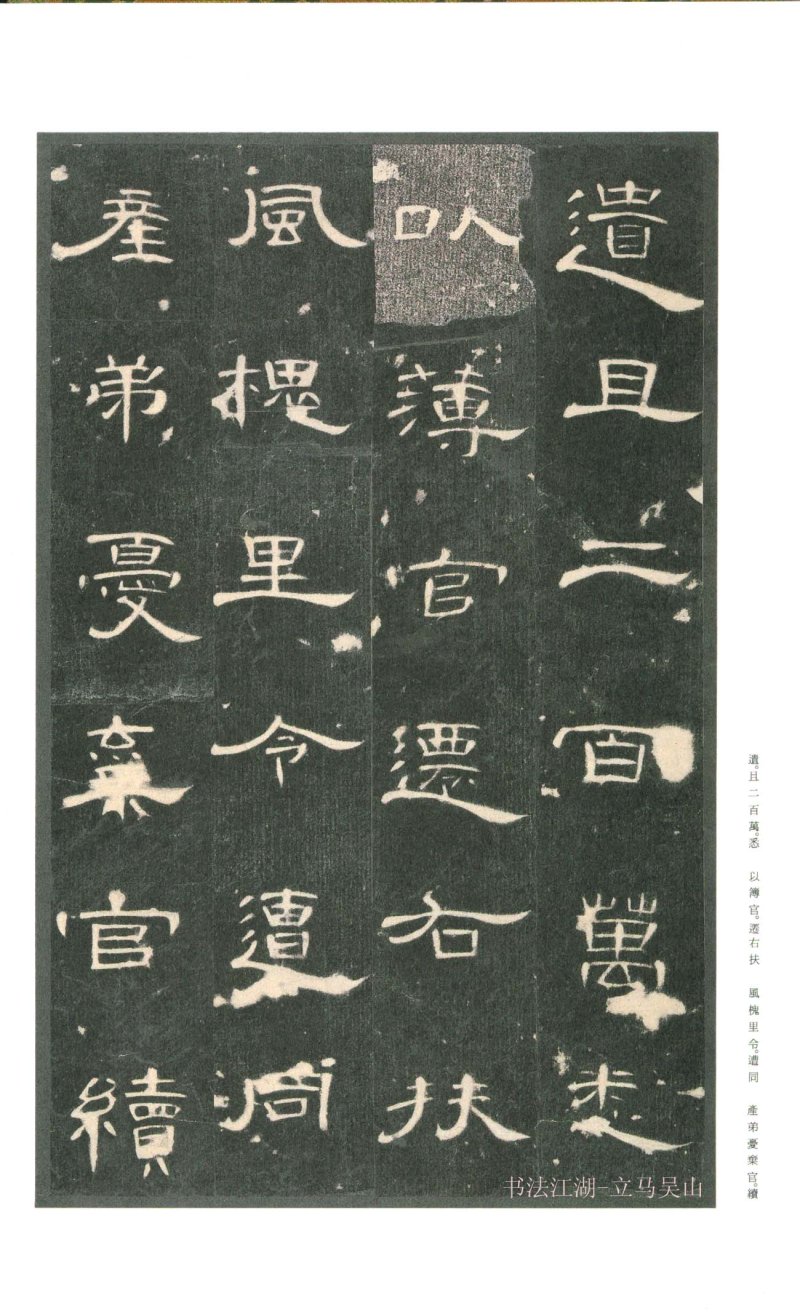 遺且二百萬悉
以薄官遷右扶
風槐里令遭同
產弟憂棄官續
遺。且二百萬。悉　以簿官。遷右扶　風槐里令。遭同　產弟憂棄官。續
书法江湖-立马吴山